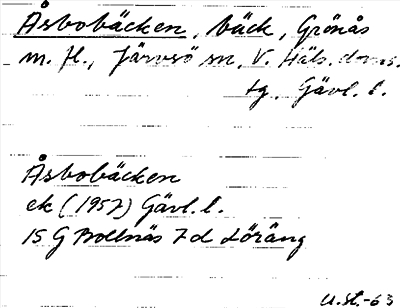 Åsbobäcken, bäck, Grönås
m. fl., Järvsö sn, V. Häls. doms.
tg, Gävl. l.
Åsbobäcken
ek (1957) Gävl. l.
15 G Bollnäs 7d Löräng
U.St.-63